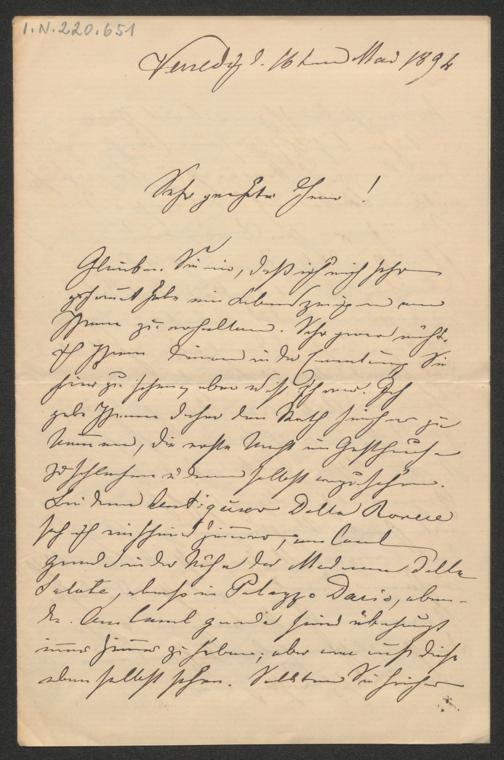 I.N. 220.651
Venedig d. 16ten Mai 1894
Sehr geehrter Herr!
Glauben Sie mir, daß ich mich sehr
gefreut habe ein Lebenszeichen von
Ihnen zu erhalten. Sehr gerne
ich Ihnen in der Sie
hier zu sehen, aber ist schwer. Ich
gebe Ihnen daher den Rath hierher zu
kommen, die erste Nacht im Gasthause
zu schlafen u dann selbst anzusehen.
Bei dem Antiquar Della Rovere
sah ich Zimmer, am Canal
grande in der Nähe der Madonna della
Salute, ebenso im Palazzo Dario, eben-
da. Am Canal grande sind überhaupt
immer Zimmer zu haben; aber man muß diese
eben selbst sehen. Sollten Sie hierher